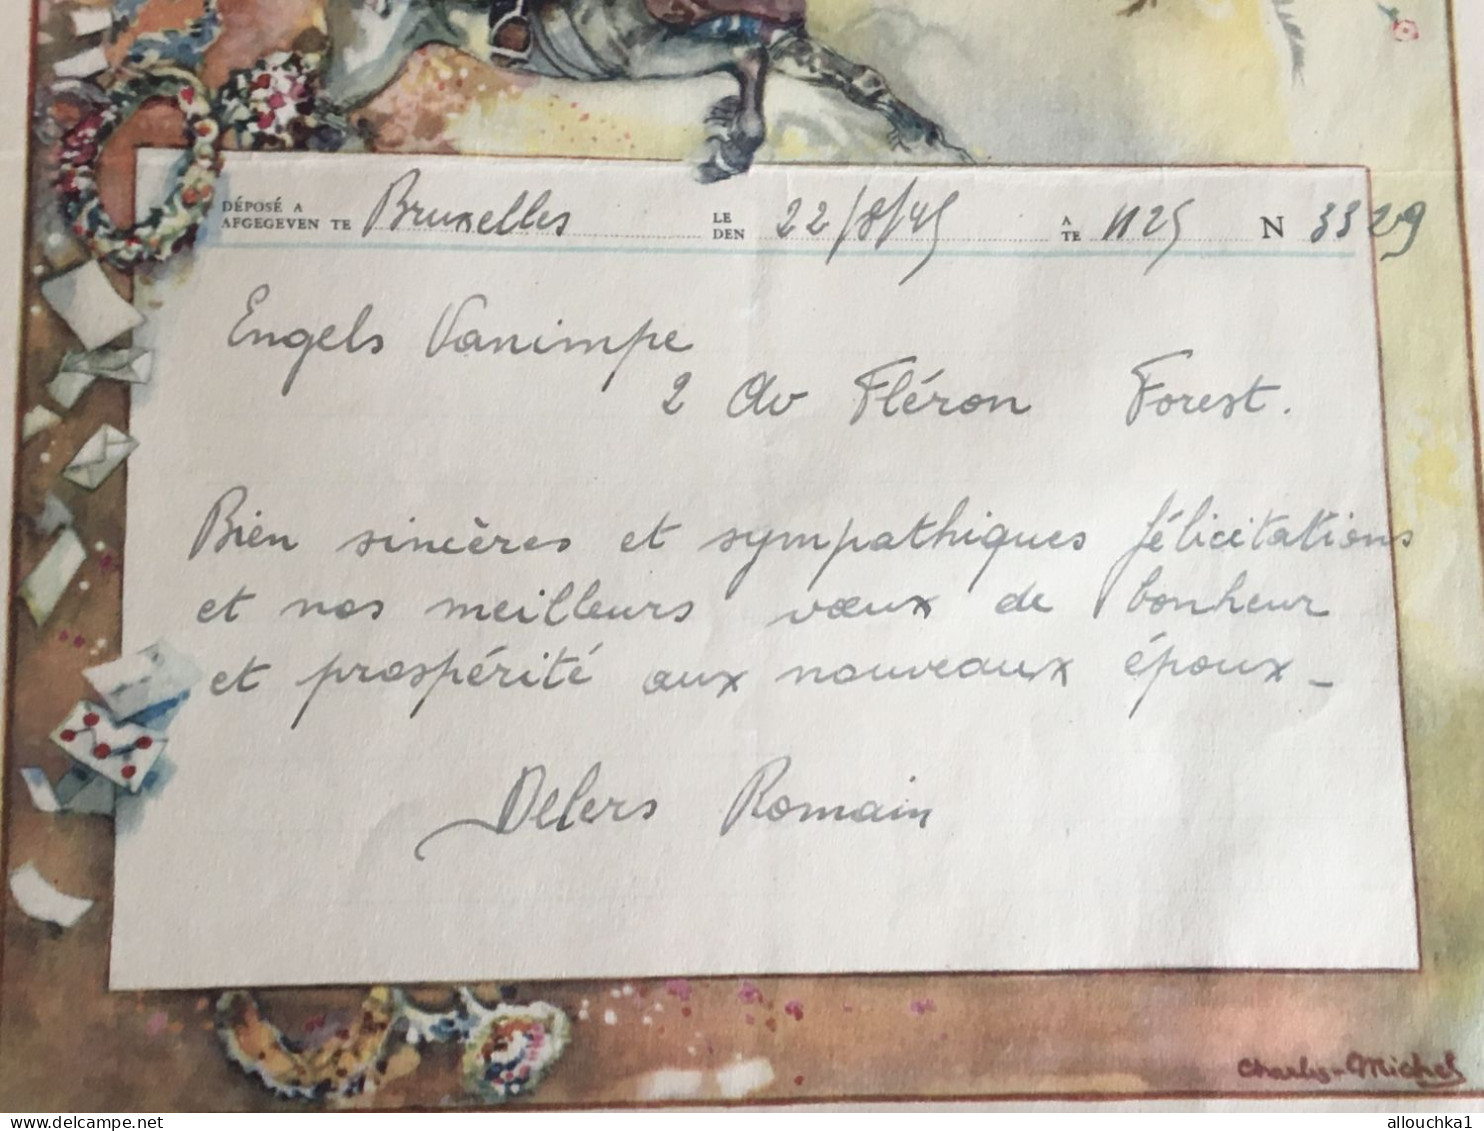 DÉPOSÉ A
AFGEGEVEN TE Bruxelles LE
DEN 22/8/45 A
TE 1125 N 3329
Engels Vanimpe
2 Av Fléron Forest.
Bien sincères et sympathiques félicitations
et nos meilleurs vœux de bonheur
et prospérité aux nouveaux époux_
Delers Romain
Charly-Michel
delcampe.net
allouchka1